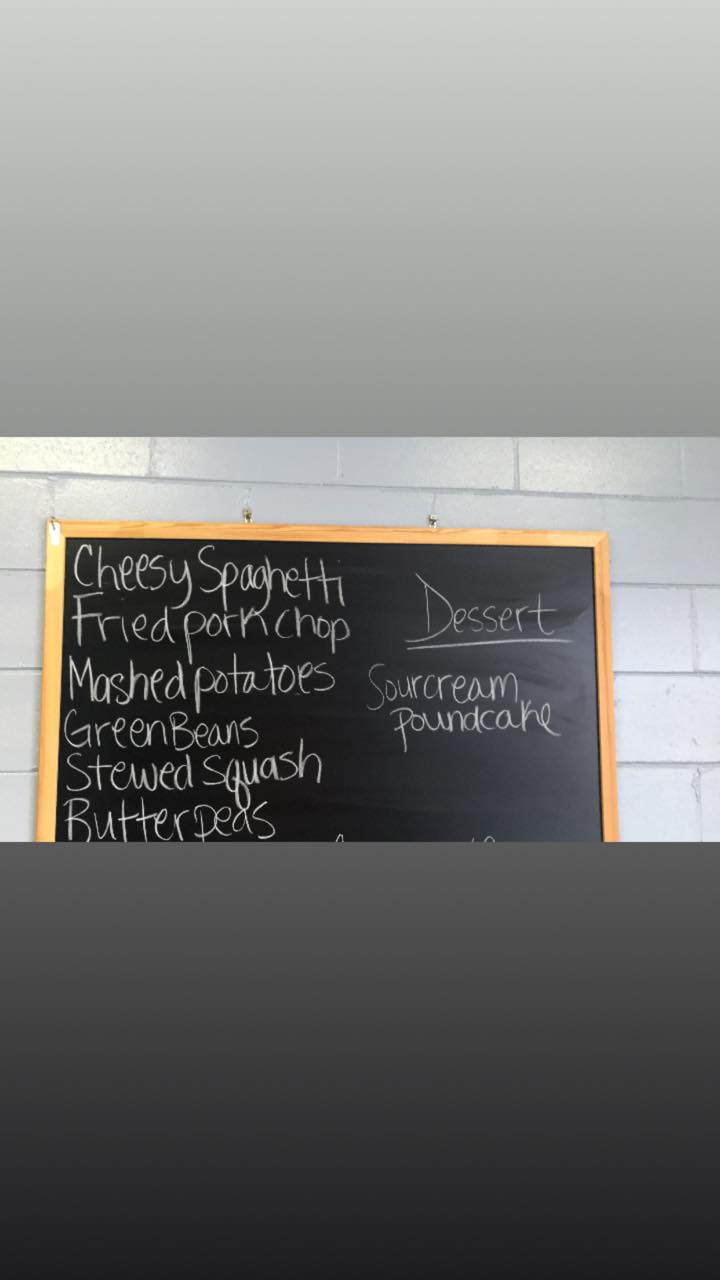 Cheesy Spaghetti
Fried pork chop
Mashed potatoes
Green Beans
Stewed Squash
Butter peas
Dessert
Sourcream
poundcake